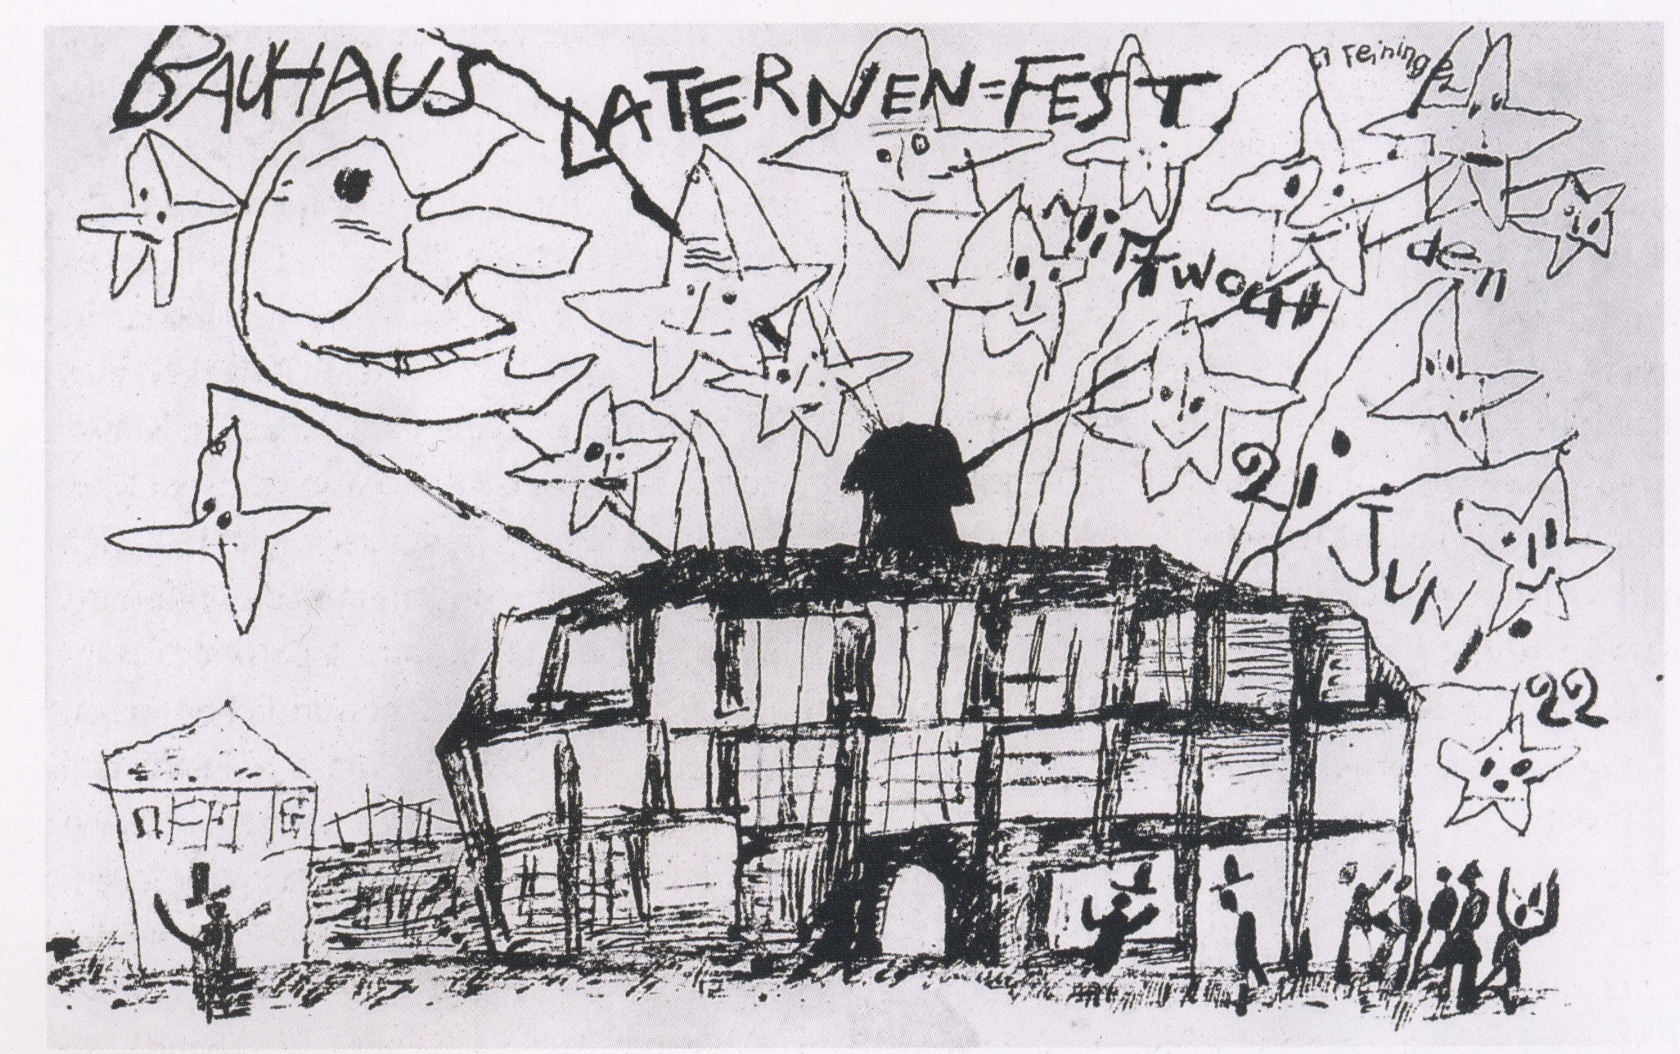 BAUHAUS LATERNEN=FEST
Feininger
MITTWOCH den
21. JUNI
22